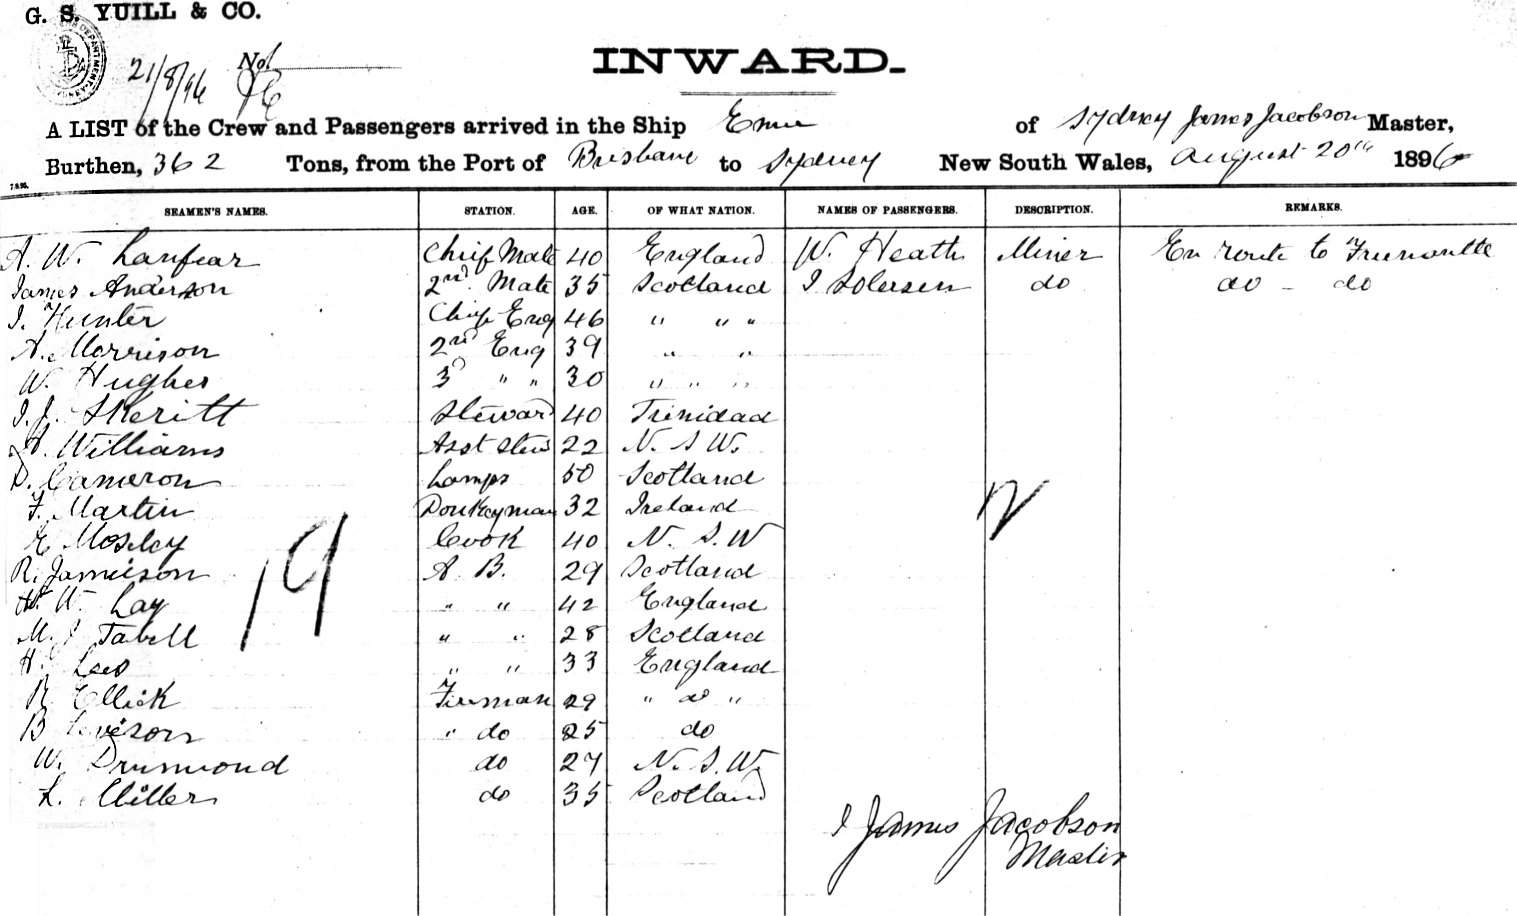 G. S. YUILL & CO.
INWARD.
21/8/96 No.
A LIST of the Crew and Passengers arrived in the Ship of Sydney James Jacobson Master,
Burthen, 362 Tons, from the Port of Brisbane to Sydney New South Wales, August 20th 1896
7.8.95.
SEAMEN'S NAMES. STATION. AGE. OF WHAT NATION. NAMES OF PASSENGERS. DESCRIPTION. REMARKS.
A. W. Lanfear Chief Mate 40 England W. Heath Miner En route to Fremantle
James Anderson 2nd. Mate 35 Scotland I Solersen do do - do
J. Hunter Chief Eng 46 " " "
A. Morrison 2nd Eng 39 " "
W. Hughes 3d " " 30 " " "
J. J. Skeritt Steward 40 Trinidad
A. Williams Asst Stew 22 N. S W.
D. Cameron Lamps 50 Scotland
F. Martin Donkeyman 32 Ireland
E Mosley Cook 40 N. S. W
R. Jamieson A B. 29 Scotland
W. Lay " " 42 England
M. J Tabell " " 28 Scotland
H. Lees " " 33 England
R. Ellick Fireman 29 " do "
B Leveson " do 25 do
W. Drummond do 27 N. S. W.
L. Miller do 35 Scotland
19
2
James Jacobson
Master